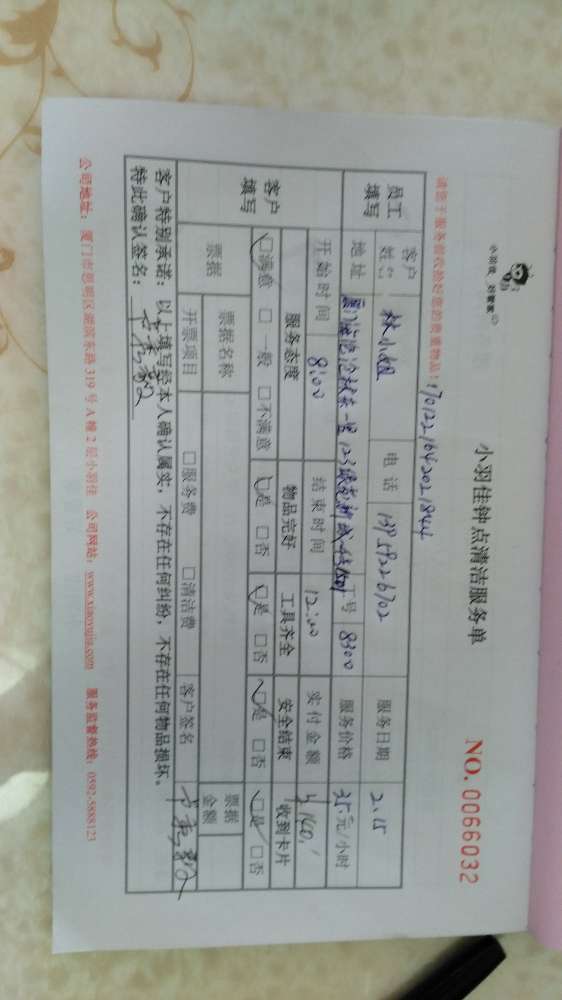 小羽佳钟点清洁服务单
NO. 0066032
请您于服务前收拾好您的贵重物品!
1701221642021844
员工填写 客户姓名 林小姐 电话 13959226702 服务日期 2.15
地址 工号 8300 服务价格 35元/小时
开始时间 8:00 结束时间 12:00 实付金额 140
客户填写 服务态度 物品完好 工具齐全 安全结束 收到卡片
□满意 □一般 □不满意 □是 □否 □是 □否 □是 □否 □是 □否
票据 票据名称 票据金额
开票项目 □服务费 □清洁费 客户签名
客户特别承诺：以上填写经本人确认属实，不存在任何纠纷，不存在任何物品损坏。
特此确认签名：
公司地址：厦门市思明区湖滨东路319号A幢2层小羽佳 公司网站：www.xiaoyujia.com 服务监督热线：0592-5888123